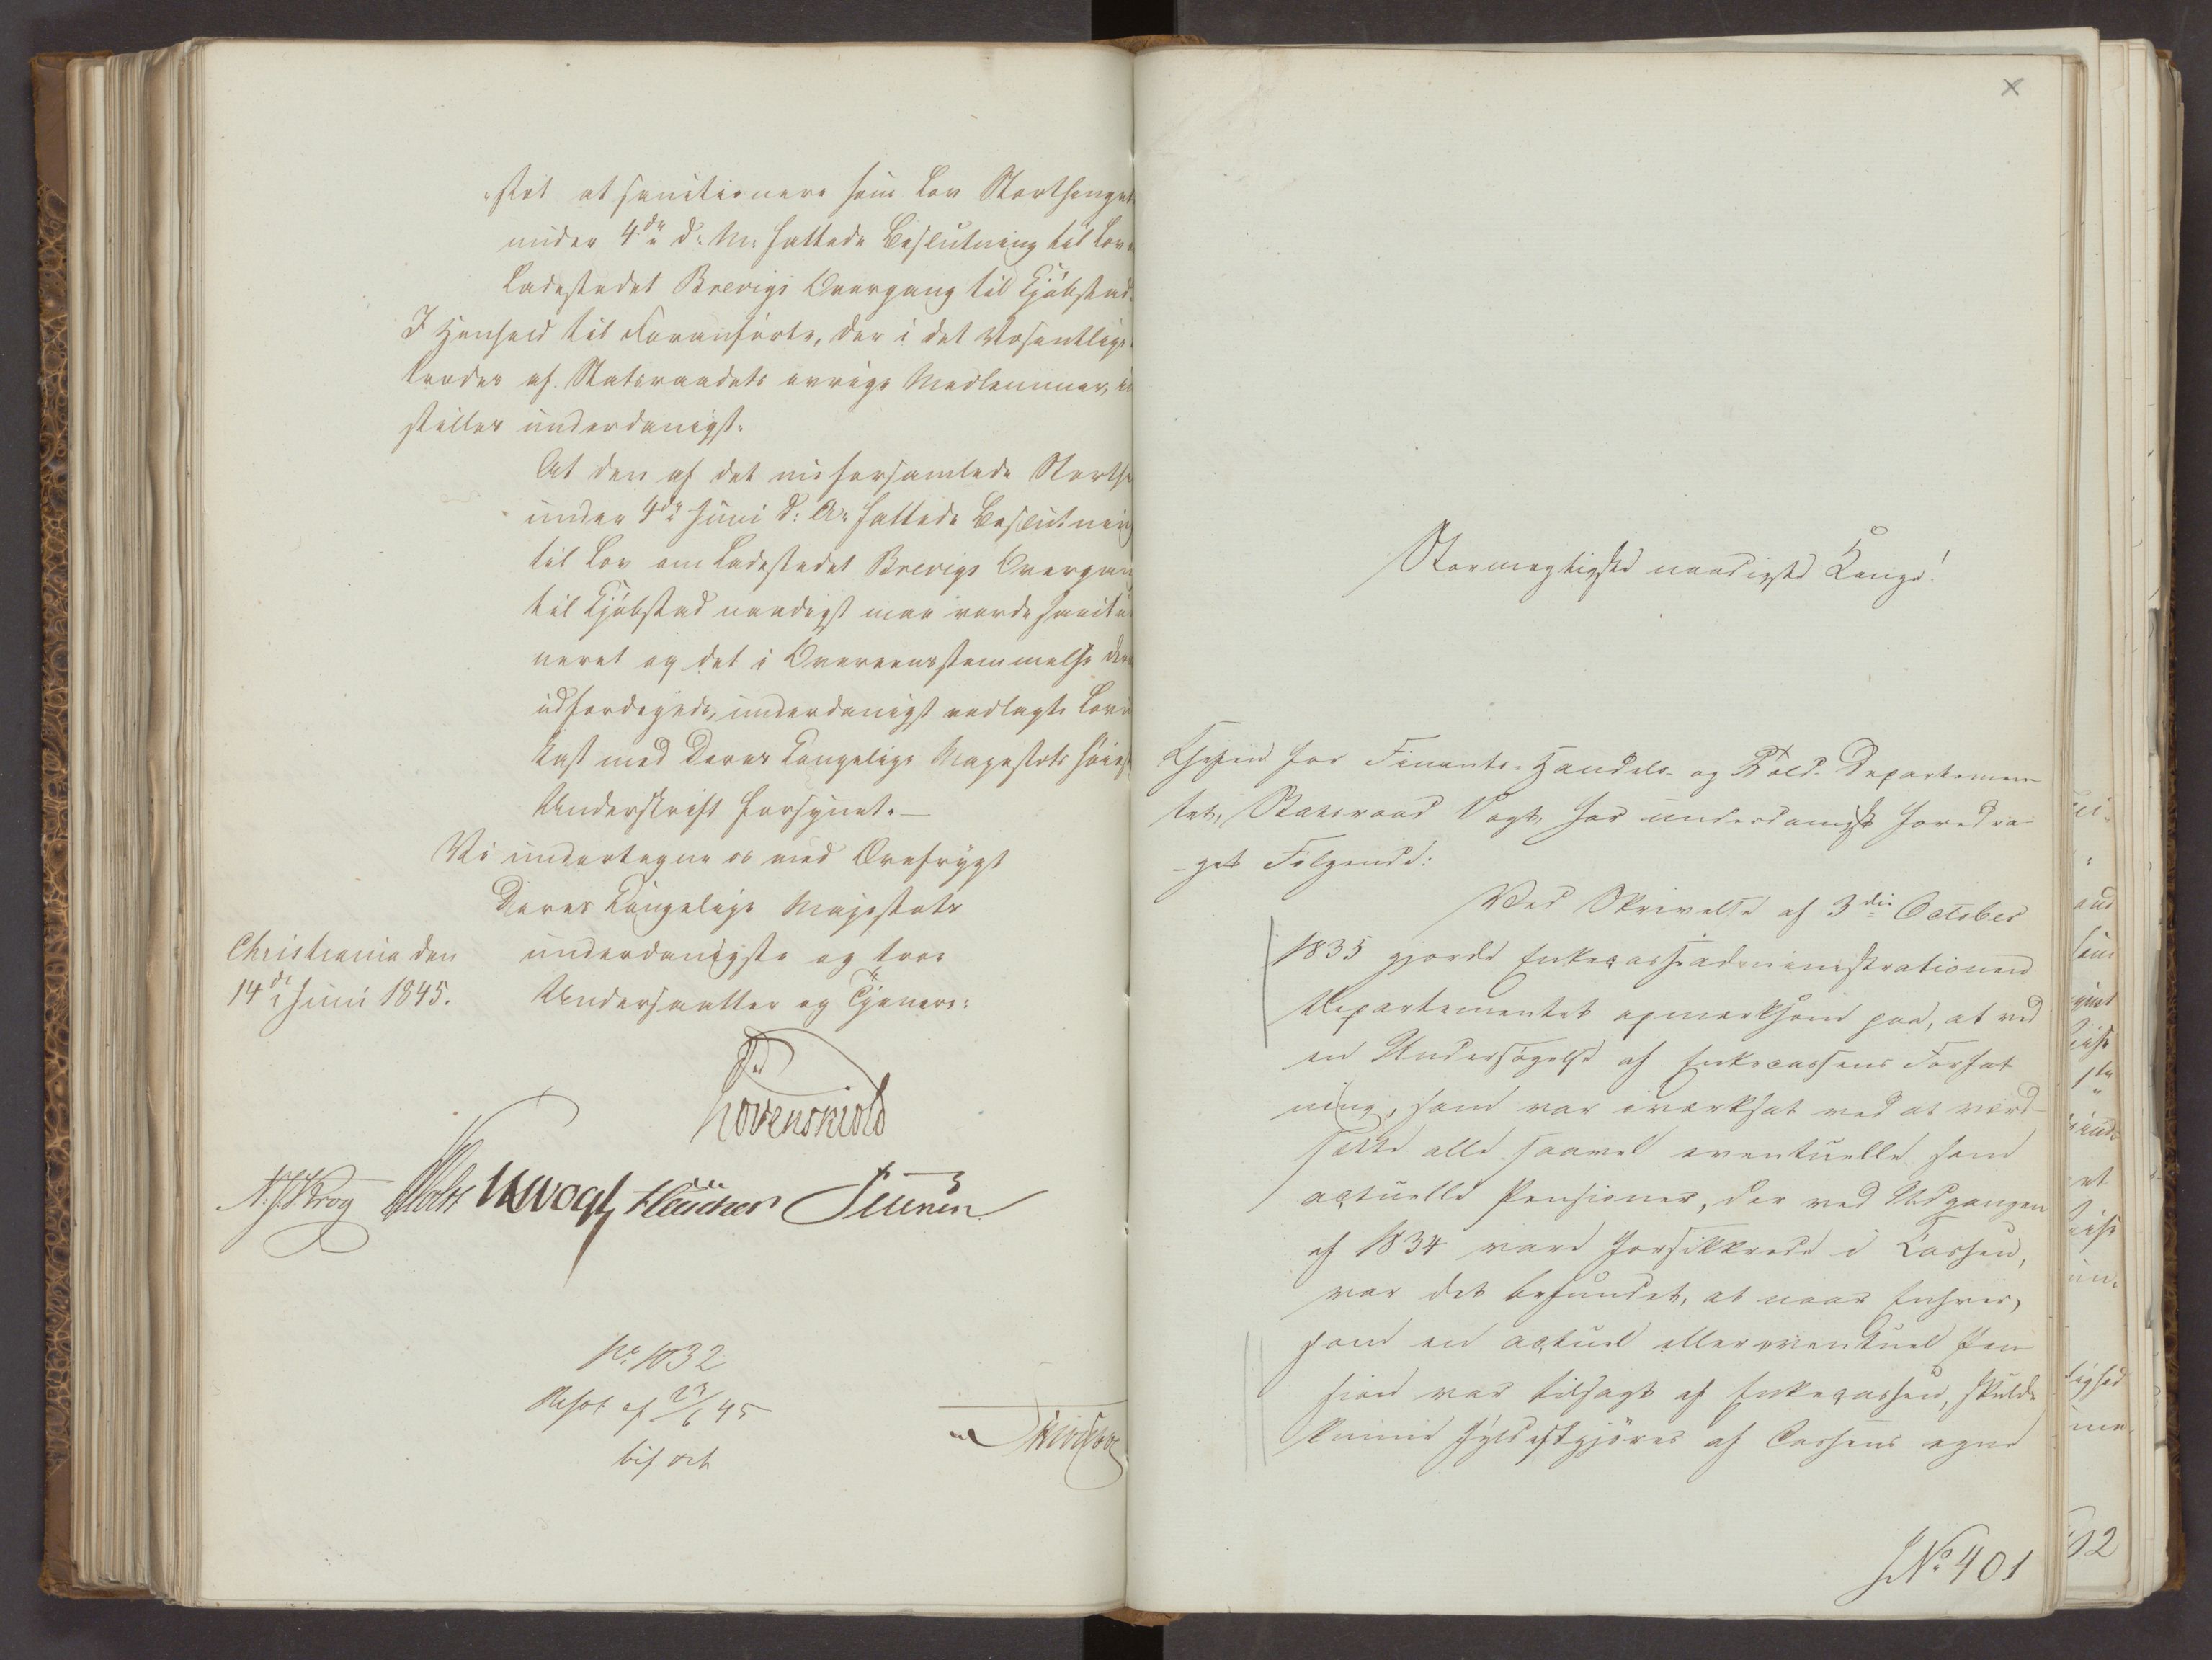 stet at sanctionere som Lov Storthingets
under 4de d: M: fattede Beslutning til Lov
Ladestedet Brevigs Overgang til Kjöbstad.
I Henhold til Foranförte, der i det Væsentlige
tiltrædes af Statsraadets övrige Medlemmer,
stilles underdanigst:
At den af det nu forsamlede Storth
under 4de Juni d: A: fattede Beslutning
til Lov om Ladestedet Brevigs Overgang
til Kjöbstad naadigst maa vorde sanctio
neret og det i Overeensstemmelse der
udfærdigede, underdanigst vedlagte Lov
kast med Deres Kongelige Majestæts höie
Underskrift forsynet.—
Vi undertegne os med Ærefrygt
Deres Kongelige Majestæts
Christiania den underdanigste og troe
14de Juni 1845. Undersaatter og Tjenere:
Løvenskiold
Krog Holst Vogt
No 1032
Resol af 23/6 45
bif
x
Stormægtigste naadigste Konge!
Chefen for Finants- Handels- og Told-Departemen
tet, Statsraad Vogt, har underdanigst foredra
-get Fölgende:
Ved Skrivelse af 3die October
1835 gjorde Enkecasseadministrationen
Departementet opmærksom paa, at ved
en Undersögelse af Enkecassens Forfat
ning, som var iværksat ved at værd-
sætte alle saavel eventuelle som
actuelle Pensioner, der ved Udgangen
af 1834 vare forsikkrede i Cassen,
var det befundet, at naar Enhver,
som en actuel eller eventuel Pen
sion var tilsagt af Enkecassen, skulde
kunne fyldestgjöres af Cassens egne
JNo 401